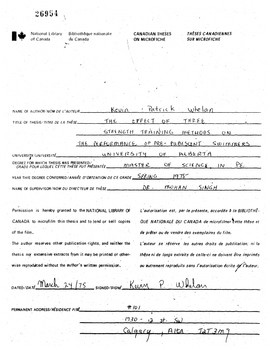 26954
National Library of Canada
Bibliothèque nationale du Canada
CANADIAN THESES ON MICROFICHE
THÈSES CANADIENNES SUR MICROFICHE
NAME OF AUTHOR/NOM DE L'AUTEUR Kevin Patrick Whelan
TITLE OF THESIS/TITRE DE LA THÈSE THE EFFECT OF THREE
STRENGTH TRAINING METHODS ON
THE PERFORMANCE OF PRE-PUBESCENT SWIMMERS
UNIVERSITY/UNIVERSITÉ UNIVERSITY OF ALBERTA
DEGREE FOR WHICH THESIS WAS PRESENTED/
GRADE POUR LEQUEL CETTE THÈSE FUT PRÉSENTÉE MASTER OF SCIENCE IN P.E.
YEAR THIS DEGREE CONFERRED/ANNÉE D'OBTENTION DE CE GRADE SPRING 1975
NAME OF SUPERVISOR/NOM DU DIRECTEUR DE THÈSE DR. MOHAN SINGH
Permission is hereby granted to the NATIONAL LIBRARY OF
CANADA to microfilm this thesis and to lend or sell copies
of the film.
The author reserves other publication rights, and neither the
thesis nor extensive extracts from it may be printed or other-
wise reproduced without the author's written permission.
L'autorisation est, par la présente, accordée à la BIBLIOTHÈ-
QUE NATIONALE DU CANADA de microfilmer cette thèse et
de prêter ou de vendre des exemplaires du film.
L'auteur se réserve les autres droits de publication; ni la
thèse ni de longs extraits de celle-ci ne doivent être imprimés
ou autrement reproduits sans l'autorisation écrite de l'auteur.
DATED/DATÉ March 24/75 SIGNED/SIGNÉ Kevin P Whelan
PERMANENT ADDRESS/RÉSIDENCE FIXE #101
Calgary, Alta